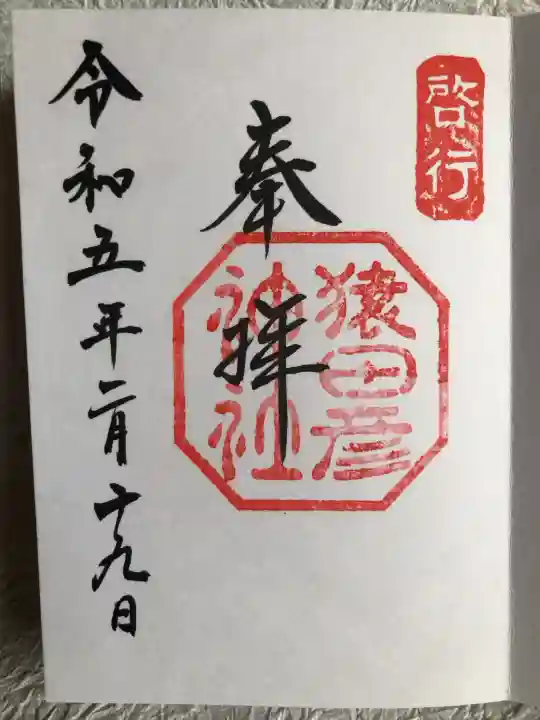 啓行
奉拝
猿田彦
神社
令和五年二月十九日